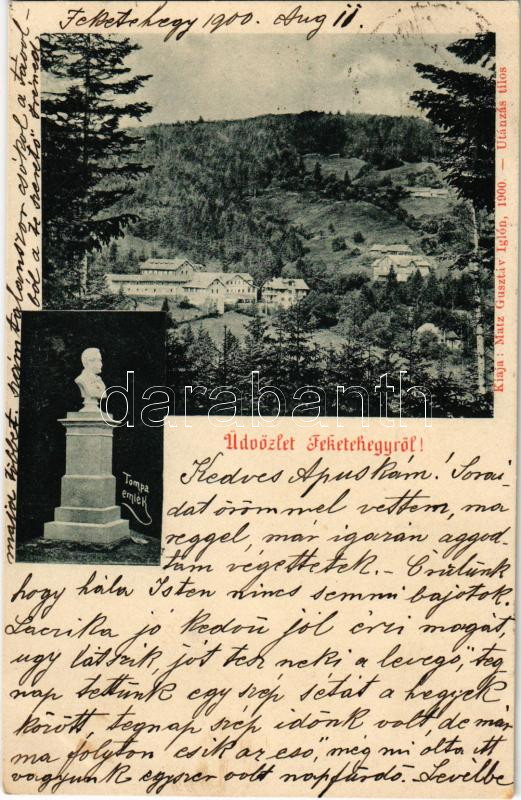 Feketehegy 1900. Aug 11.
Kiadja: Matz Gusztáv Iglón, 1900. — Utánzás tilos
darabanth
Tompa
emlék
Üdvözlet Feketehegyről!
Kedves Apuskám! Sorai-
dat örömmel vettem, ma
reggel, már igazán aggod-
tam végettetek. – Örülünk
hogy hála Isten nincs semmi bajotok.
Laczika jó kedvü jól érzi magát,
ugy látszik, jót tesz neki a levegő, teg-
nap tettünk egy szép sétát a hegyek
között, tegnap szép időnk volt, de már
ma folyton esik az eső, még mi olta itt
vagyunk egyszer volt napfürdő. Levélbe
majd többet. Számtalanszor csókol a távol-
ból a te szerető